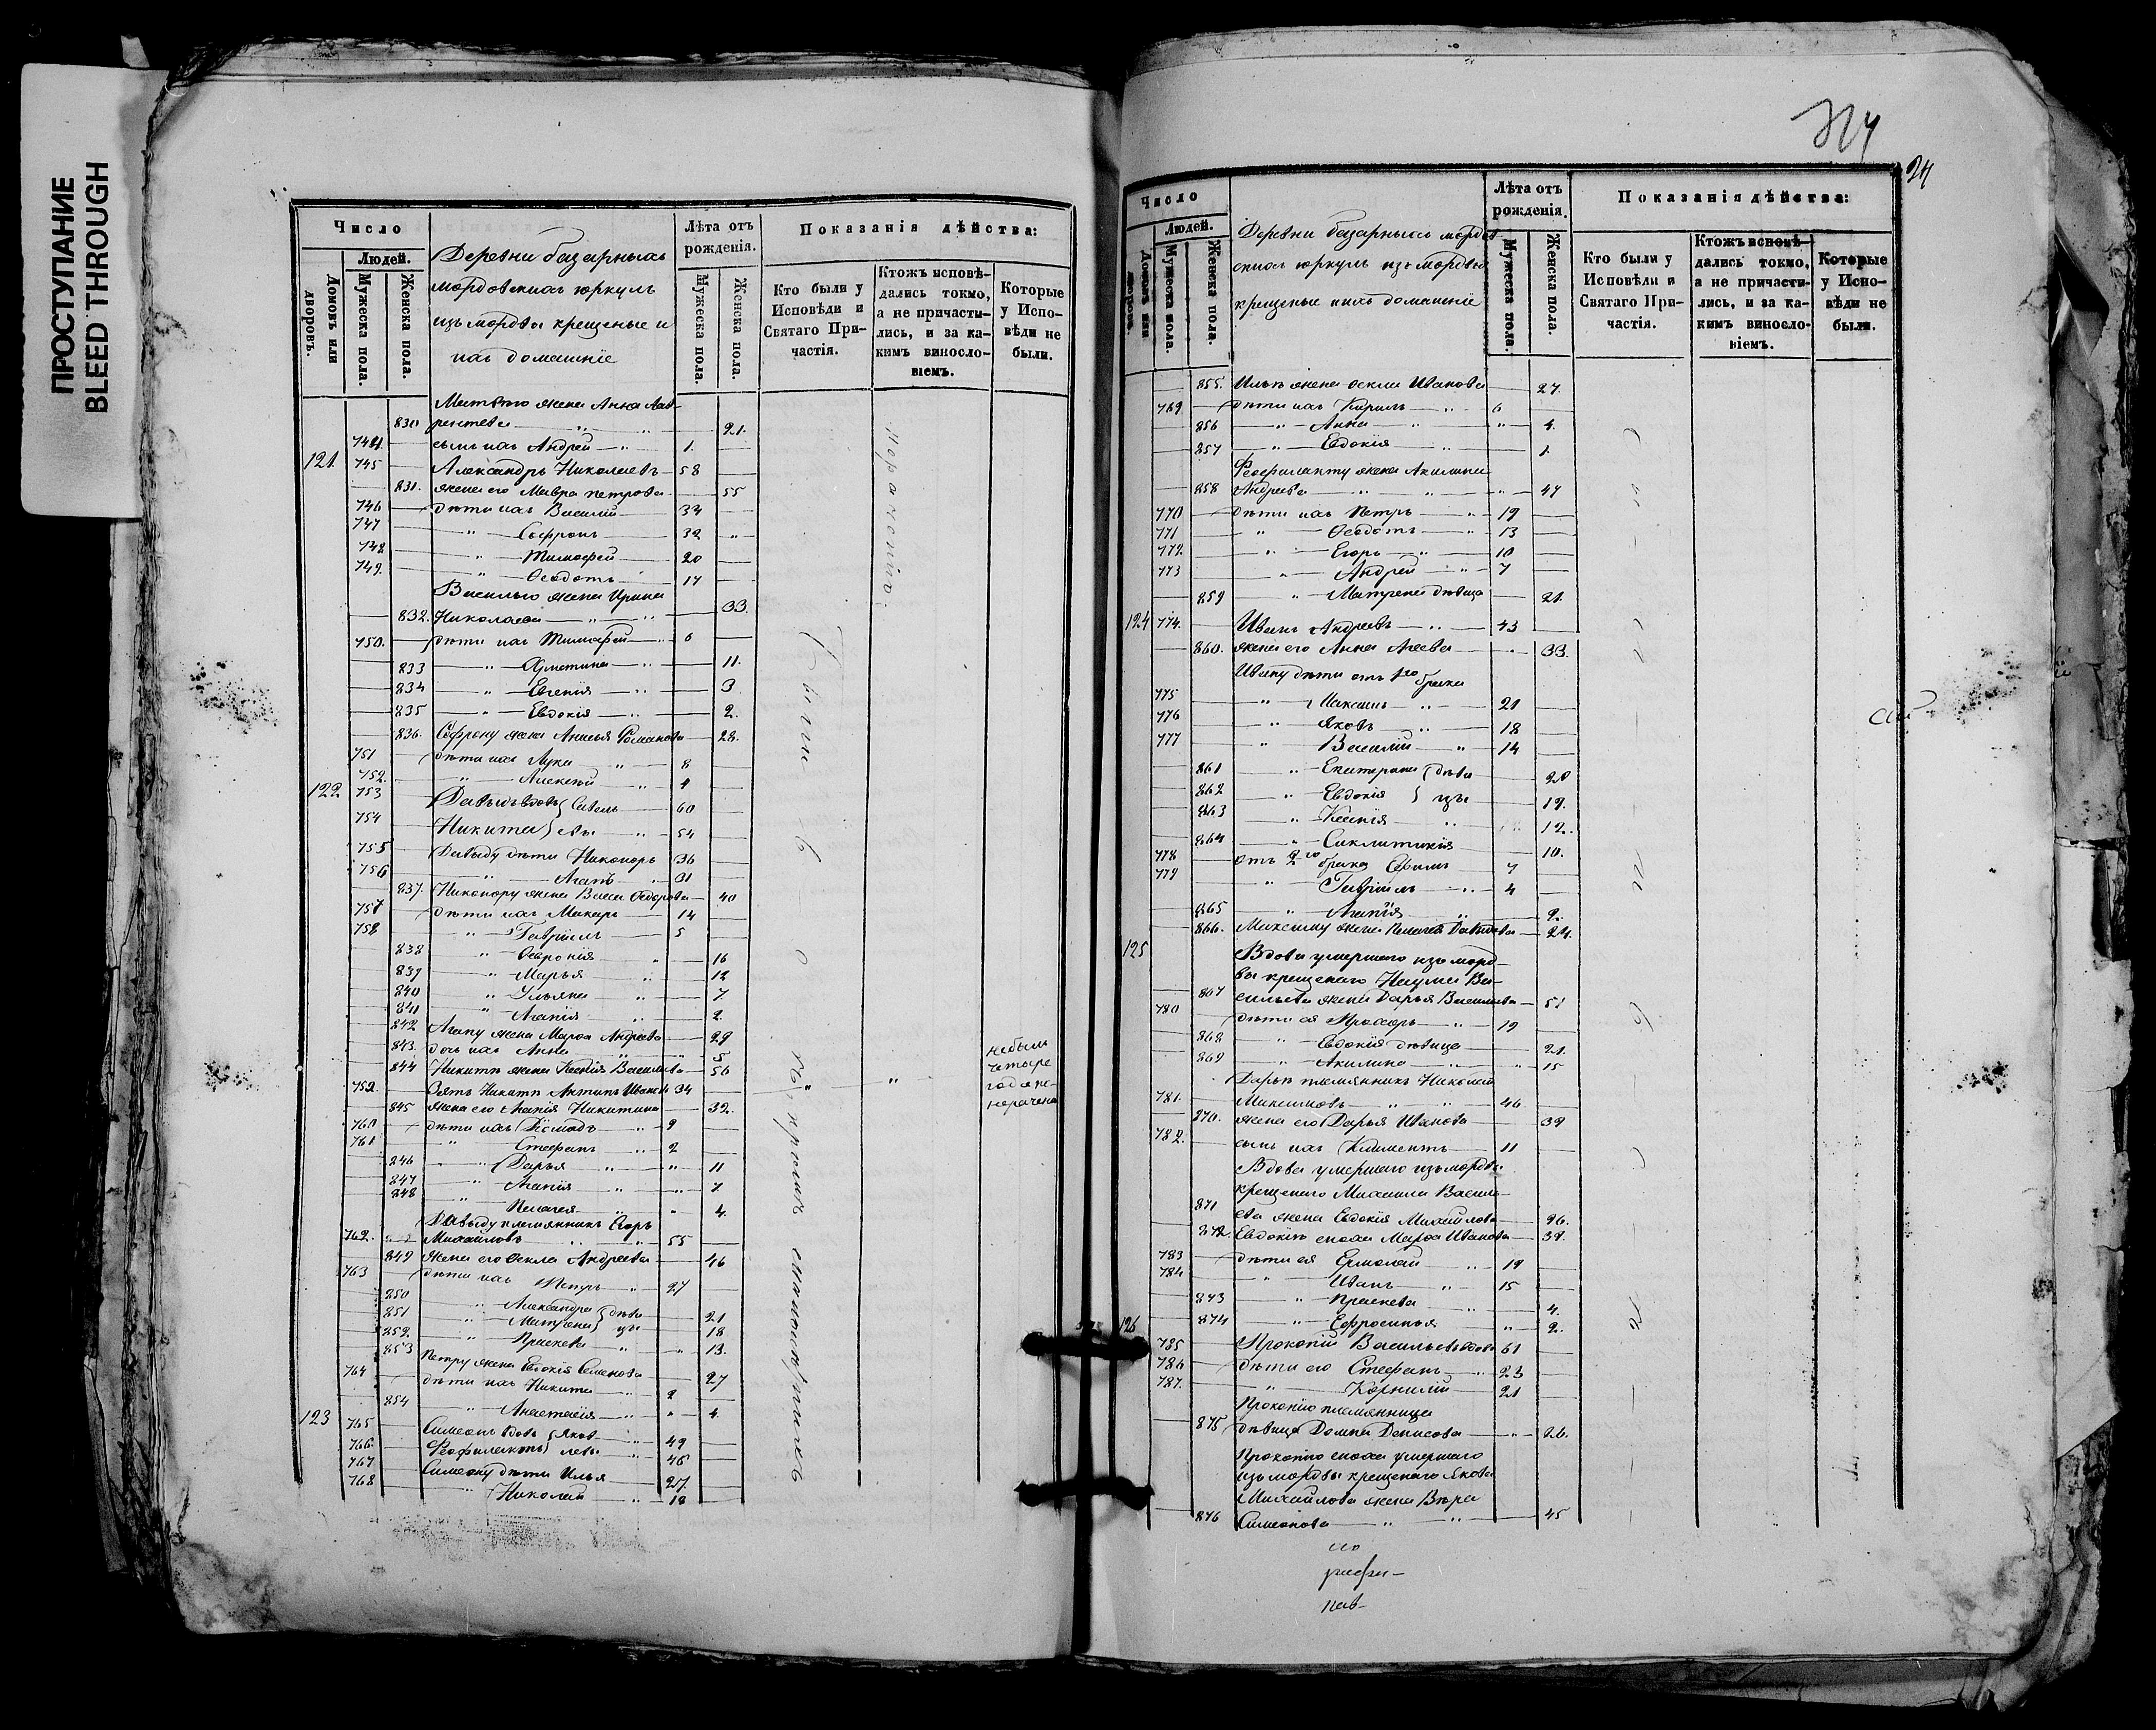 ПРОСТУПАНИЕ
BLEED THROUGH
Число
Людей.
Домовъ или дворовъ.
Мужеска пола.
Женска пола.
Деревни базарныхъ
мордовскихъ юркуль
изъ мордвы крещеные и
ихъ домашніе
Лѣта отъ рожденія.
Мужеска пола.
Женска пола.
Показанія дѣйства:
Кто были у Исповѣди и Святаго Причастія.
Ктожъ исповѣдались токмо, а не причастились, и за какимъ винословіемъ.
Которые у Исповѣди не были.
830 жена Анна 21.
744 сынъ ихъ Андрей 1.
121 745 Александръ Николаевъ 58
831. жена его Мавра Петрова 55
746 дѣти ихъ Василій 34
747 Софронъ 32
748 Тимофей 20
749. Ѳеодотъ 17
Василью жена Ирина
832. Николаева 33.
750. дѣти ихъ Тимофей 6
833 11.
834 Евгенія 3
835 Евдокія 2.
836. Софрону жена Анисья Романова 28.
751 дѣти ихъ Лука 8
752. Алексѣй 4
122 753 Давыдъ вдовъ 60
754 Никита 54
755 Давыду дѣти Никоноръ 36
756 Агапъ 31
837. Никонору жена Васса Ѳедорова 40
757 дѣти ихъ Макаръ 14
758 Гавріилъ 5
838 Ѳевронія 16
839 Марья 12
840 Ульяна 7
841 Агапія 2.
842 Агапу жена Марѳа Андреева 29
843. дочь ихъ Анна 5
844 Никитѣ жена Ксенія Васильева 56
759. Зять Никитѣ Антипъ Ивановъ 34
845 жена его Агапія Никитина 32.
760 дѣти ихъ 9
761 Стефанъ 2
846 Дарья 11
847 Агапія 7
848 Пелагея 4.
Давыду племянникъ Егоръ
762. Михайловъ 55
849 жена его Ѳекла Андреева 46
763 дѣти ихъ Петръ 27
850 Александра дѣви
851 Матрена цы 21
852 Праскева 18
853 13.
Петру жена Евдокія Семенова 27
764 дѣти ихъ Никита 2
854 Анастасія 4.
123 765 Симеонъ вдовъ Яков 49
766. Феофилактъ левы 46
767 Симеону дѣти Илья 27
768 Николай 18
небыли
четыре
года
Число
Людей.
Домовъ или дворовъ.
Мужеска пола.
Женска пола.
Деревни базарныхъ мордов
скихъ юркуль изъ мордвы
крещеные и ихъ домашніе
Лѣта отъ рожденія.
Мужеска пола.
Женска пола.
Показанія дѣйства:
Кто были у Исповѣди и Святаго Причастія.
Ктожъ исповѣдались токмо, а не причастились, и за какимъ винословіемъ.
Которые у Исповѣди не были.
24
855. Ильѣ жена Ѳекла Иванова 27.
769. дѣти ихъ Кирилъ 6
856 Анна 4.
857 Евдокія 1.
Феофилакту жена Акилина
858 Андреева 47
770 дѣти ихъ Петръ 19
771 Ѳеодотъ 13
772. Егоръ 10
773 Андрей 7
859 Матрена дѣвица 21.
124 774. Иванъ Андреевъ 43
860. жена его Анна Агеева 33.
Ивану дѣти отъ 1го брака
775 Максимъ 21
776 Яковъ 18
777 Василій 14
861 Екатерина дѣви 20
862 Евдокія цы 19.
863 Ксенія 12.
864 Синклитикія 10.
778 отъ 2го брака Ефимъ 7
779 Гавріилъ 4
865 Агапія 2.
866. Максиму жена Пелагея Давидова 24.
125 Вдова умершаго изъ морд-
вы крещенаго Наума Ва-
867 сильева жена Дарья Васильева 51
780 дѣти ея Прохоръ 19
868 Евдокія дѣвица 21.
869 Акилина 15
Дарьѣ племянникъ Николай
781. Максимовъ 46
870. жена его Дарья Иванова 39
782. сынъ ихъ Климентъ 11
Вдова умершаго изъ мордвы
крещенаго Михаила Василь-
871 ева жена Евдокія Михайлова 96.
872. Евдокіѣ сноха Марѳа Иванова 39.
783 дѣти ея Ермолай 19
784 Иванъ 15
873 Праскева 4.
874 Ефросинья 2.
126 785 Прокопій Васильевъ вдовъ 61
786 дѣти его Стефанъ 23
787. Корнилій 21
Прокопію племянница
875 дѣвица Домна Денисова 26.
Прокопію сноха умершаго
изъ мордвы крещенаго Якова
Михайлова жена Вѣра
876 Симеонова 45